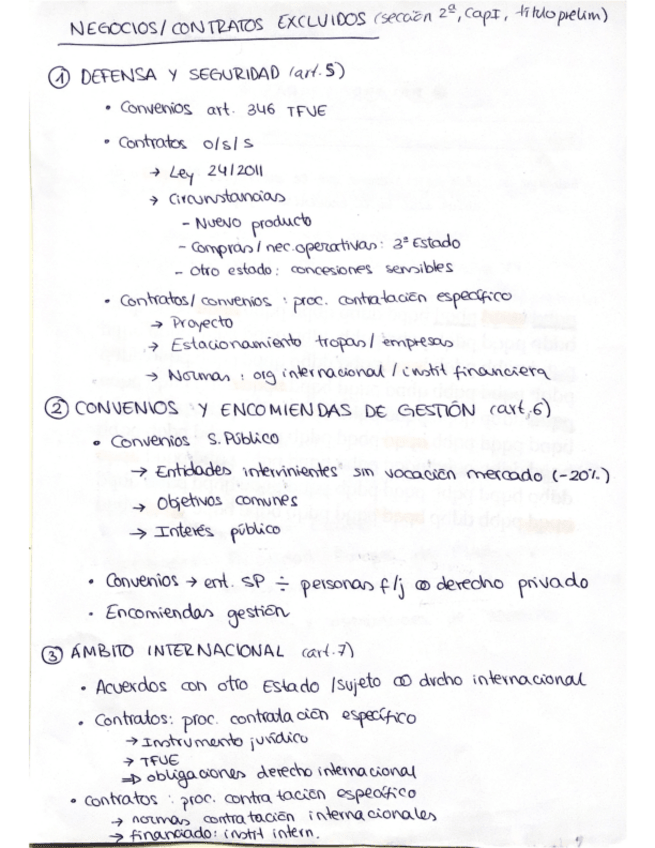 NEGOCIOS/ CONTRATOS EXCLUIDOS (sección 2ª, Cap I, título prelim)
① DEFENSA Y SEGURIDAD (art. 5)
• Convenios art. 346 TFUE
• Contratos o/s/s
→ Ley 24/2011
→ Circunstancias
- Nuevo producto
- Compras / nec. operativas: 3º Estado
- Otro estado: concesiones sensibles
• Contratos/ convenios : proc. contratación específico
→ Proyecto
→ Estacionamiento tropas/ empresas
→ Normas : org internacional / instit financiera
② CONVENIOS Y ENCOMIENDAS DE GESTIÓN (art. 6)
• Convenios S. Público
→ Entidades intervinientes sin vocación mercado (-20%)
→ Objetivos comunes
→ Interés público
• Convenios → ent. SP ÷ personas f/j ∞ derecho privado
• Encomiendas gestión
③ ÁMBITO INTERNACIONAL (art. 7)
• Acuerdos con otro Estado /sujeto ∞ drcho internacional
• Contratos: proc. contratación específico
→ Instrumento jurídico
→ TFUE
⇒ obligaciones derecho internacional
• Contratos : proc. contratación específico
→ normas contratación internacionales
→ financiado: instit intern.